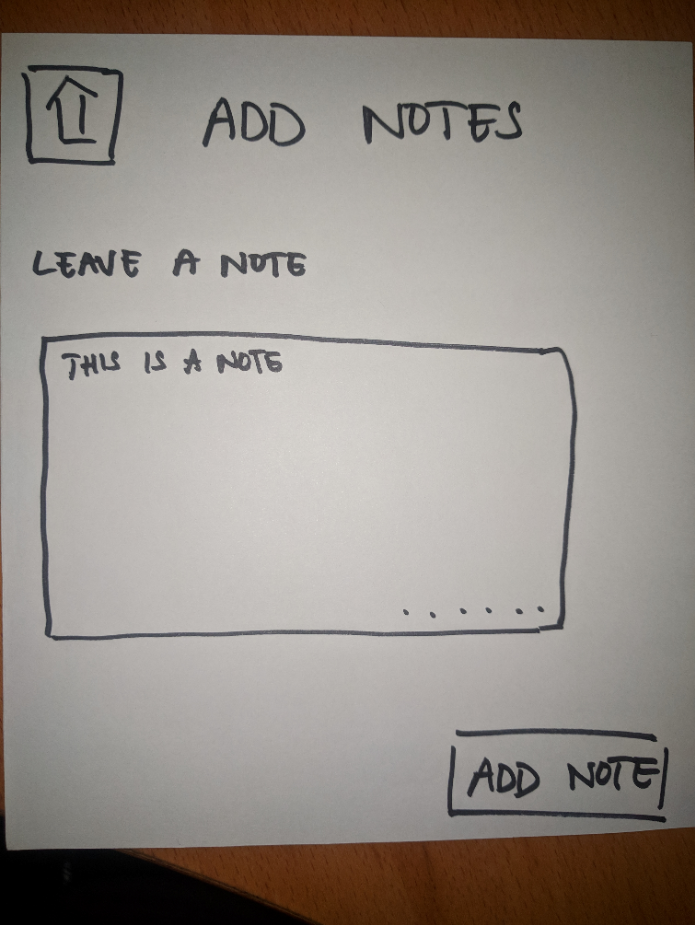 ADD NOTES
LEAVE A NOTE
THIS IS A NOTE
......
ADD NOTE